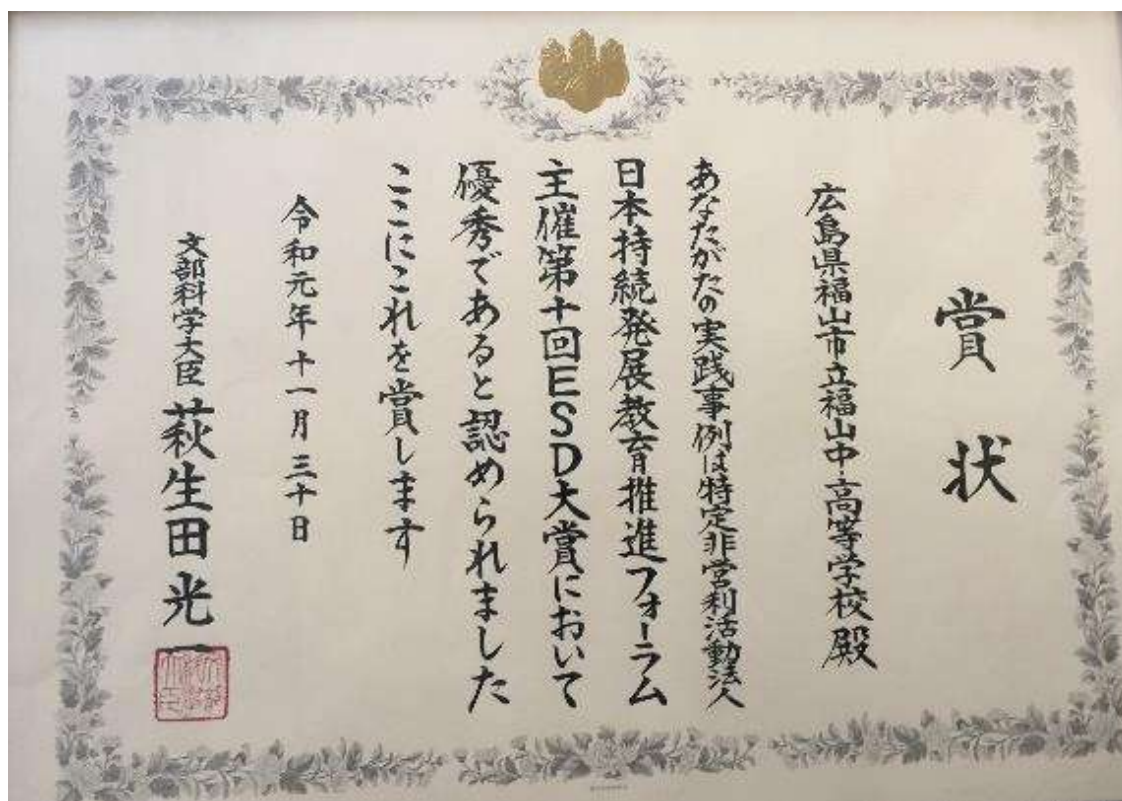 賞状
広島県福山市立福山中・高等学校殿
あなたがたの実践事例は特定非営利活動法人
日本持続発展教育推進フォーラム
主催第十回ESD大賞において
優秀であると認められました
ここにこれを賞します
令和元年十一月三十日
文部科学大臣 萩生田光一